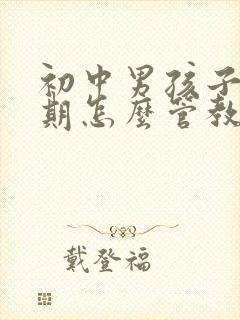 初中男孩子
期怎麼管教
戴登福